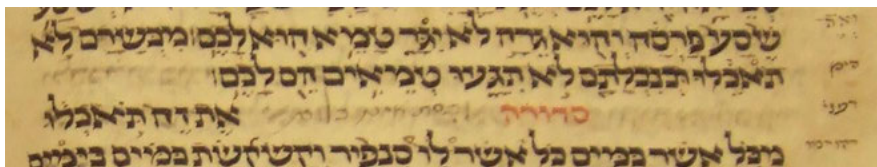 שסע פרסה והוא גרה לא יגר טמא הוא לכם׃ מבשרם לא
תאכלו ובנבלתם לא תגעו טמאים הם לכם׃
סדורה את זה תאכלו
מכל אשר במים כל אשר לו סנפיר וקשקשת במים בימים